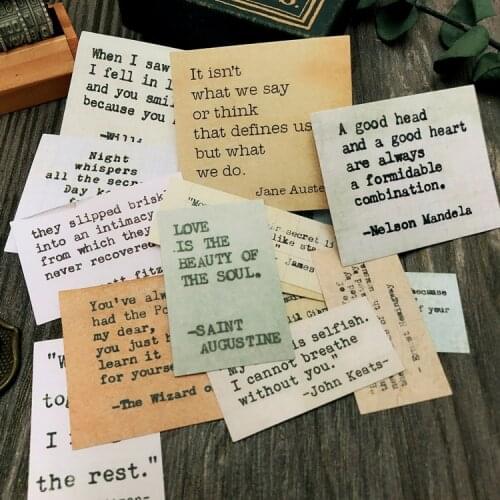 When I saw
I fell in l
and you smi
because you
-Willi
It isn't
what we say
or think
that defines us
but what
we do.
Jane Auste
A good head
and a good heart
are always
a formidable
combination.
-Nelson Mandela
Night
whispers
all the secre
Day k
they slipped briskl
into an intimacy
from which they
never recovered
tt fitz
LOVE
IS THE
BEAUTY OF
THE SOUL.
-SAINT
AUGUSTINE
ur secret li
like sta
James
because
of your
Hemingway
You've alw
had the Po
my dear,
you just h
learn it
for yourse
-The Wizard o
is selfish.
I cannot breathe
without you."
-John Keats-
"W
tog
I
the rest."